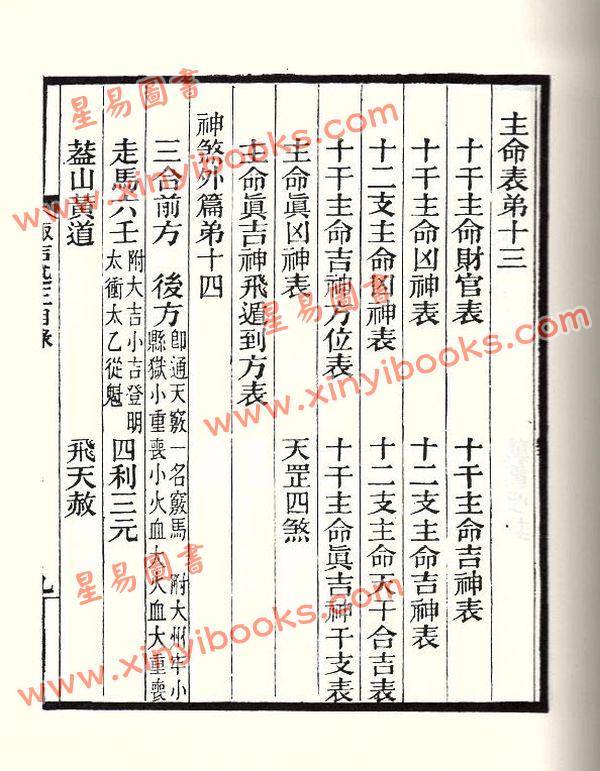 主命表弟十三
十干主命財官表 十干主命吉神表
十干主命凶神表 十二支主命吉神表
十二支主命凶神表 十二支主命天干合吉表
十干主命吉神方位表 十干主命眞吉神干支表
主命眞凶神表 天罡四煞
主命眞吉神飛遁到方表
神煞外篇弟十四
三台前方 後方
即通天竅一名竅馬 附大州牢小
縣獄小重喪小火血大火血大重喪
走馬六壬
附大吉小吉登明
太衝太乙從魁
四利三元
葢山黃道 飛天赦
目錄
星易圖書
www.xinyibooks.com
星易圖書
www.xinyibooks.com
星易圖書
www.xinyibooks.com